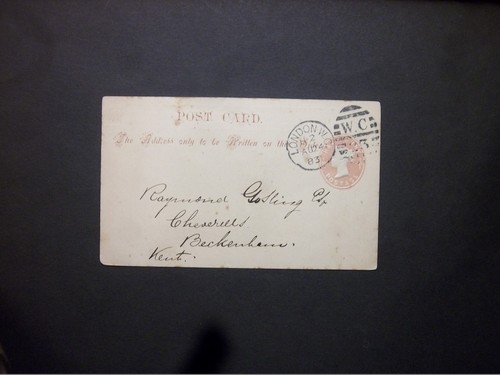 POST CARD.
The Address only to be Written on the
LONDON W.C
AU 24
83
W.C
Raymond Gosling Esq
Cheverells
Beckenham.
Kent.